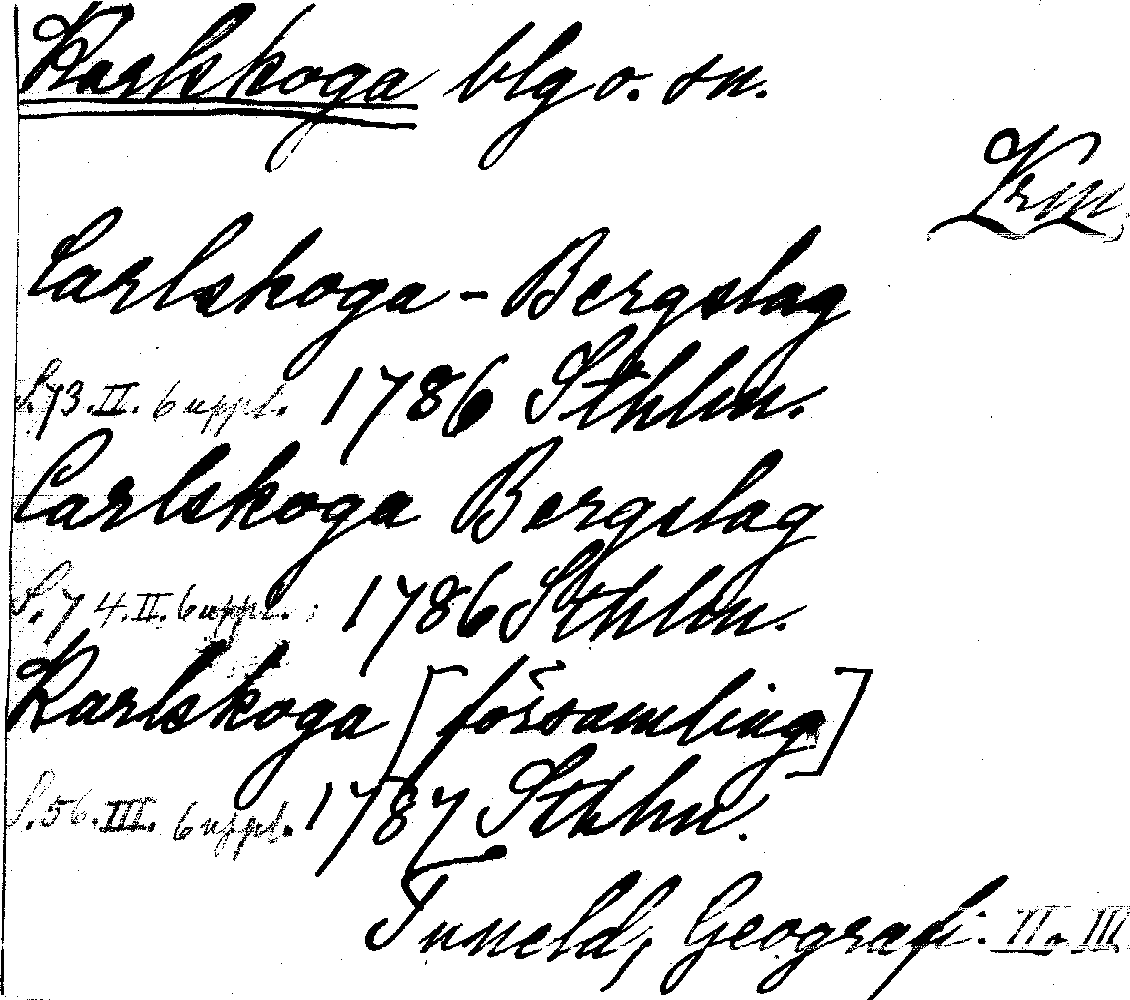 Karlskoga blg o. sn.
Vrm.
Carlskoga-Bergslag
S.73.II. 6 uppl. 1786 Sthlm.
Carlskoga Bergslag
S.74.II. 6 uppl. 1786 Sthlm.
Karlskoga [församling]
S.56.III. 6 uppl. 1787 Sthlm.
Tuneld, Geografi. II. III